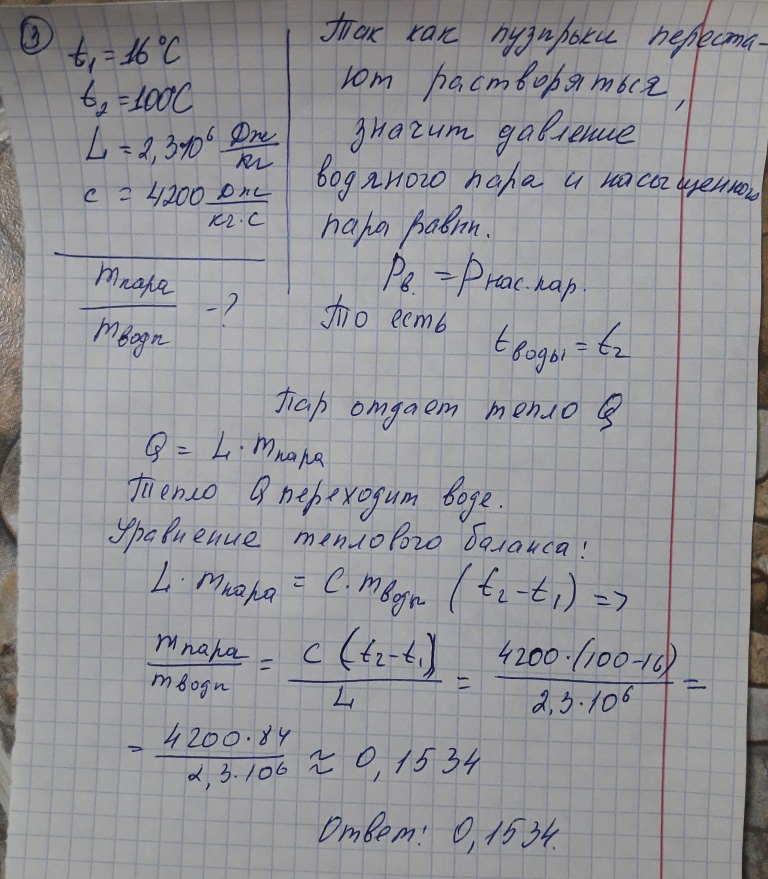 3
t₁ = 16°C
t₂ = 100°C
L = 2,3·10⁶ Дж/кг
c = 4200 Дж/кг·С
mпара/mводы - ?
Так как пузырьки переста-
ют растворяться,
значит давление
водяного пара и насыщенного
пара равны.
Pв. = Pнас.пар.
То есть
tводы = t₂
Пар отдает тепло Q
Q = L · mпара
Тепло Q переходит воде.
Уравнение теплового баланса:
L · mпара = C · mводы (t₂ - t₁) =>
mпара/mводы = c (t₂ - t₁)/L = 4200·(100-16)/2,3·10⁶ =
= 4200·84/2,3·10⁶ ≈ 0,1534
Ответ: 0,1534.